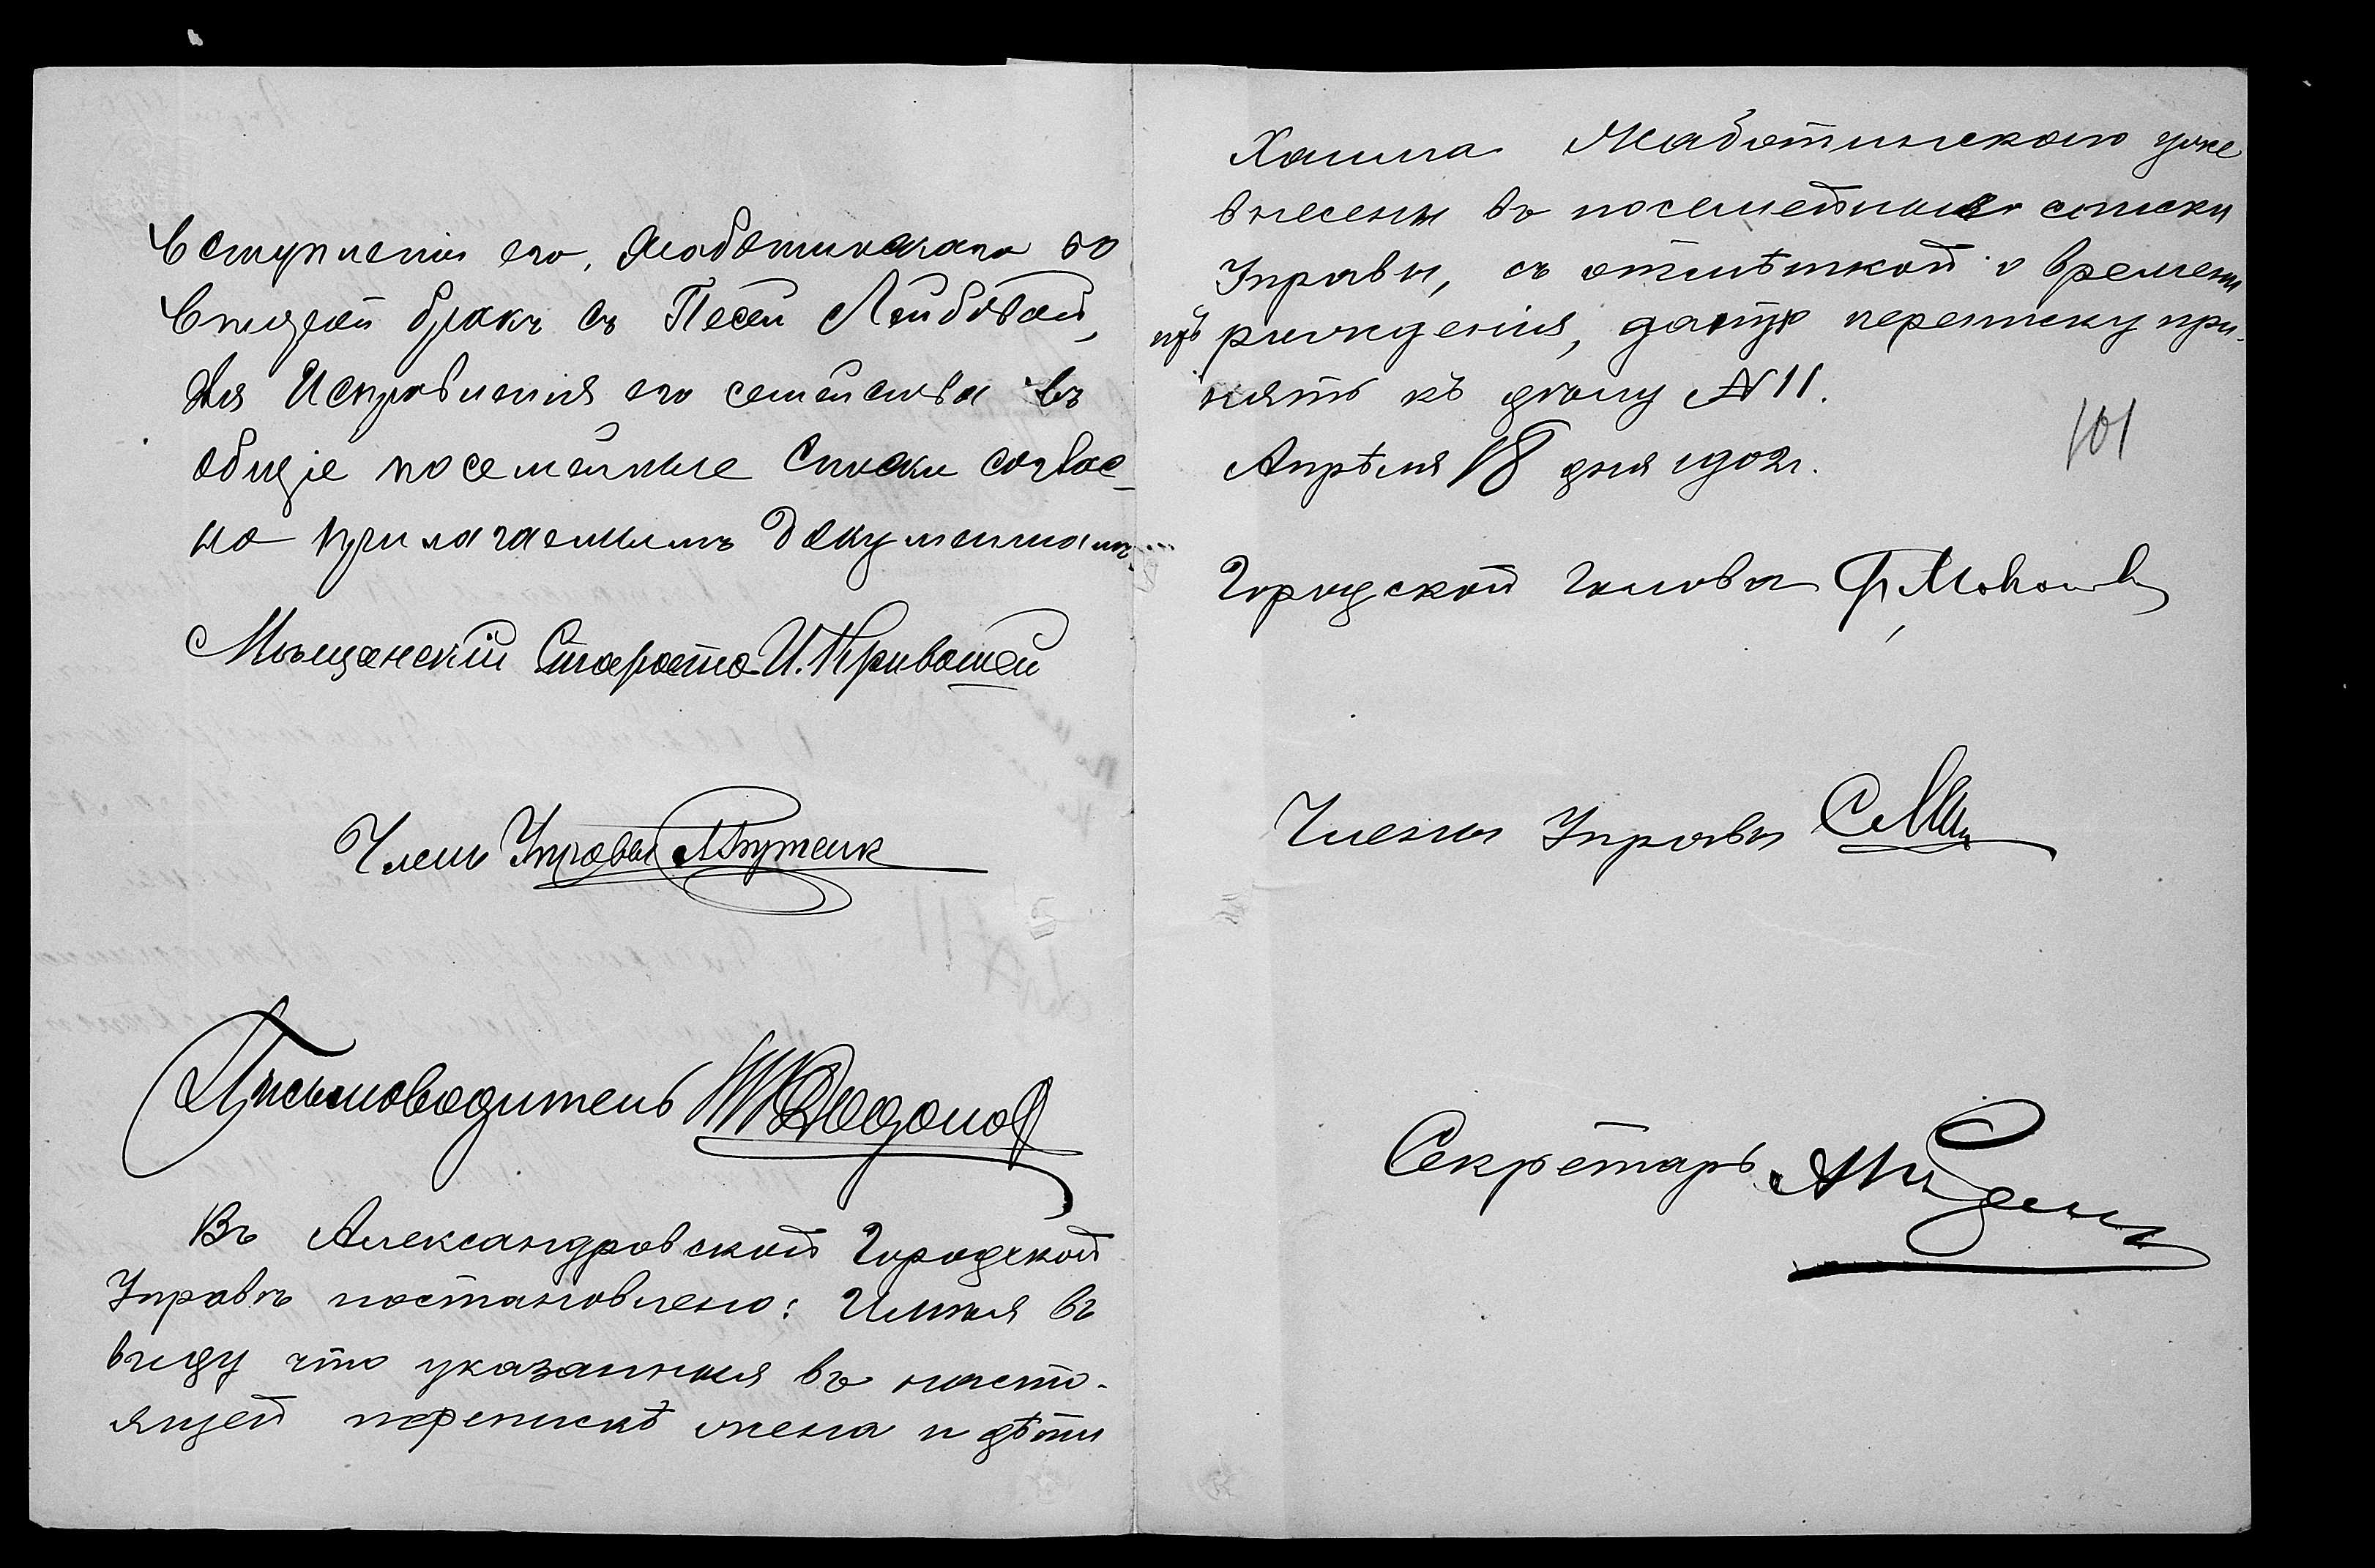 вступленіи его, Жаботинскаго во
второй бракъ съ Песей Лейбовой,
для исправленія его семейства въ
общіе посемейные списки соглас-
но прилагаемымъ документамъ.
Мѣщанскій Староста И. Кривошей
Членъ Управы
Письмоводитель
Въ Александровской Городской
Управѣ постановлено: Имѣя въ
виду что указанныя въ насто-
ящей перепискѣ жена и дѣти
Хаима Жаботинскаго уже
внесены въ посемейные списки
Управы, съ отмѣткой о времени
ихъ рожденія, данную переписку при-
нять къ дѣлу № 11.
Апрѣля 18 дня 1902 г.
101
Городской Голова Ф. Мовчановъ
Члены Управы
Секретарь